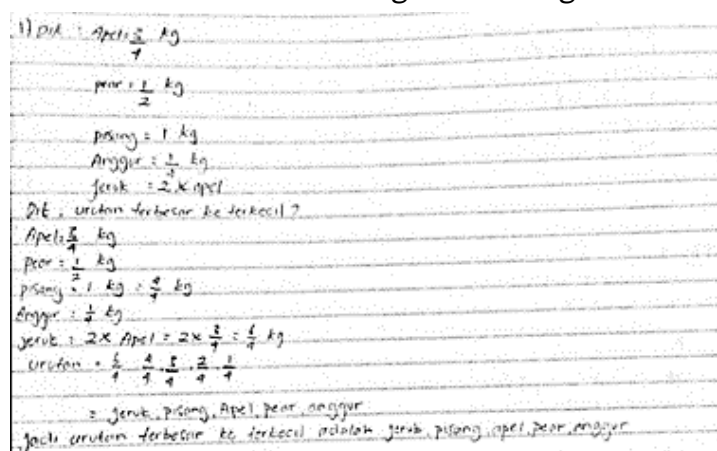 1) Dik : Apel = 3/4 kg
pear = 1/2 kg
pisang = 1 kg
Anggur = 1/4 kg
Jeruk = 2 x apel
Dit : urutan terbesar ke terkecil ?
Apel = 3/4 kg
Pear = 1/2 kg
pisang = 1 kg = 4/4 kg
Anggur = 1/4 kg
Jeruk = 2x Apel = 2x 3/4 = 6/4 kg
urutan = 6/4, 4/4, 3/4, 2/4, 1/4
= Jeruk, pisang, Apel, pear, anggur
Jadi urutan terbesar ke terkecil adalah jeruk, pisang, apel, pear, anggur